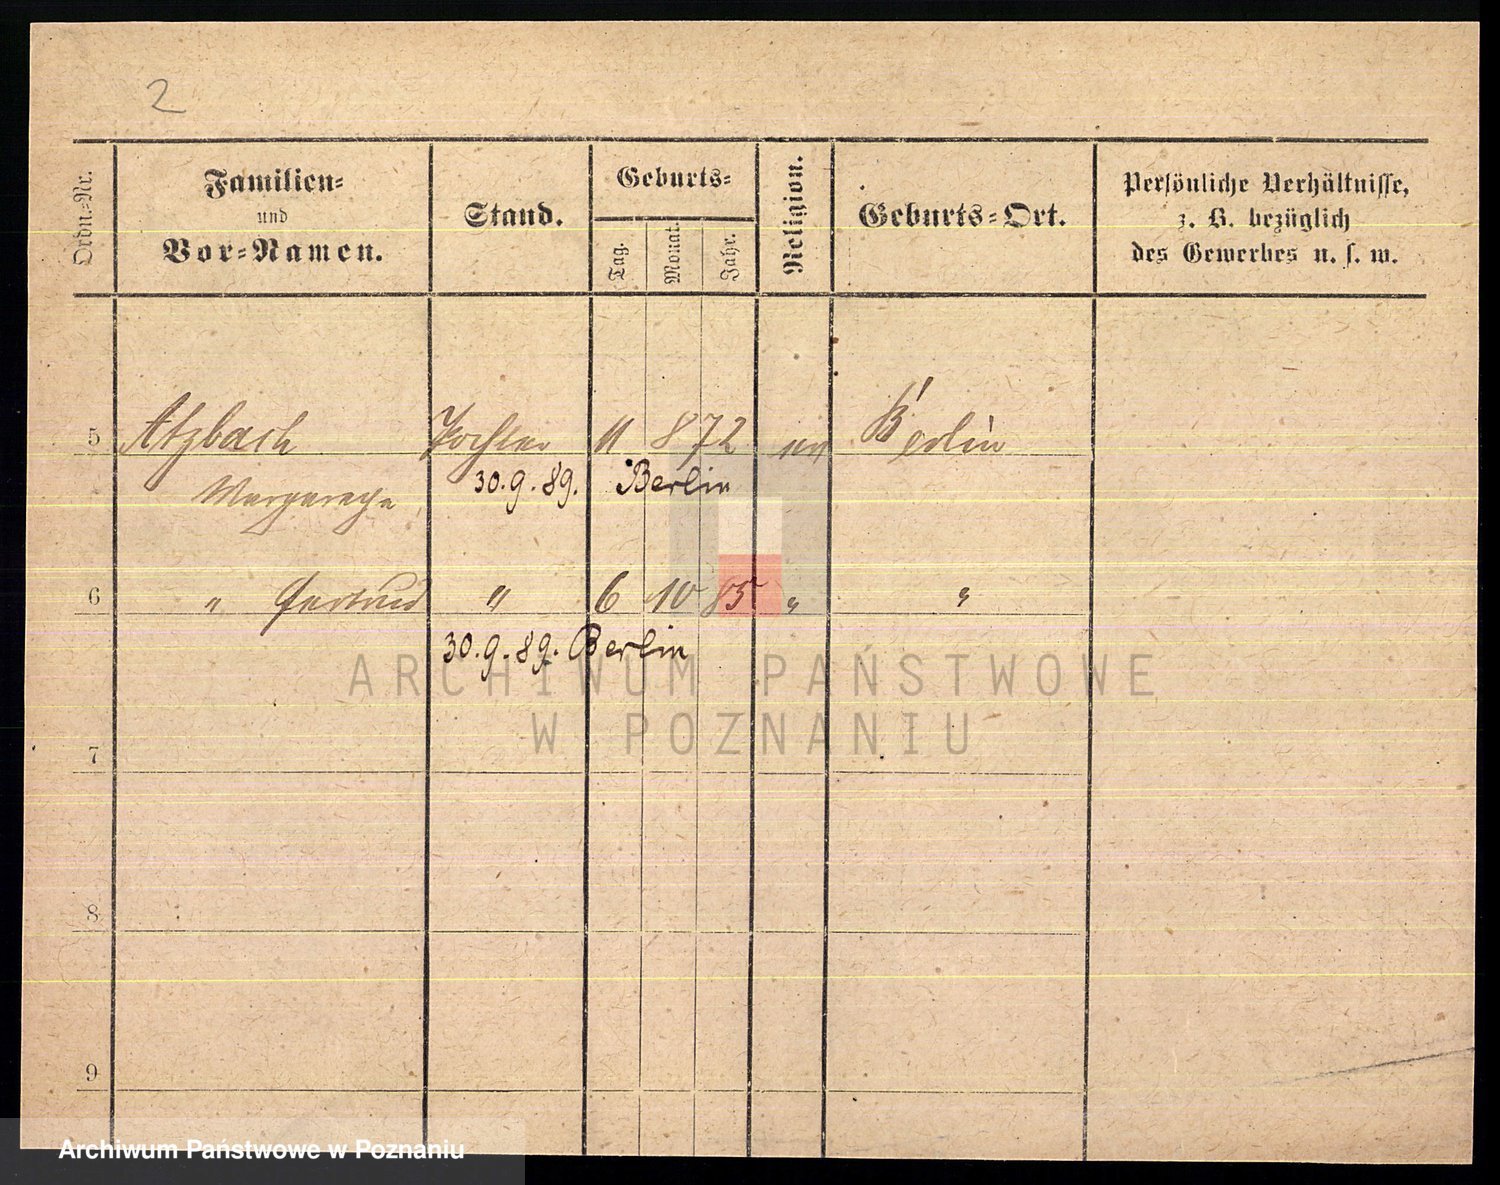 2
Ordn.-Nr.
Familien-
und
Vor-Namen.
Stand.
Geburts-
Tag.
Monat.
Jahr.
Religion.
Geburts-Ort.
Persönliche Verhältnisse,
z. B. bezüglich
des Gewerbes u. s. w.
5 Atzbach Tochter 11 8 72 ev Berlin
Margarethe 30.9.89. Berlin
6 " Gertrud " 6 10 85 " "
30.9.89. Berlin
ARCHIWUM PAŃSTWOWE
W POZNANIU
7
8
9
Archiwum Państwowe w Poznaniu